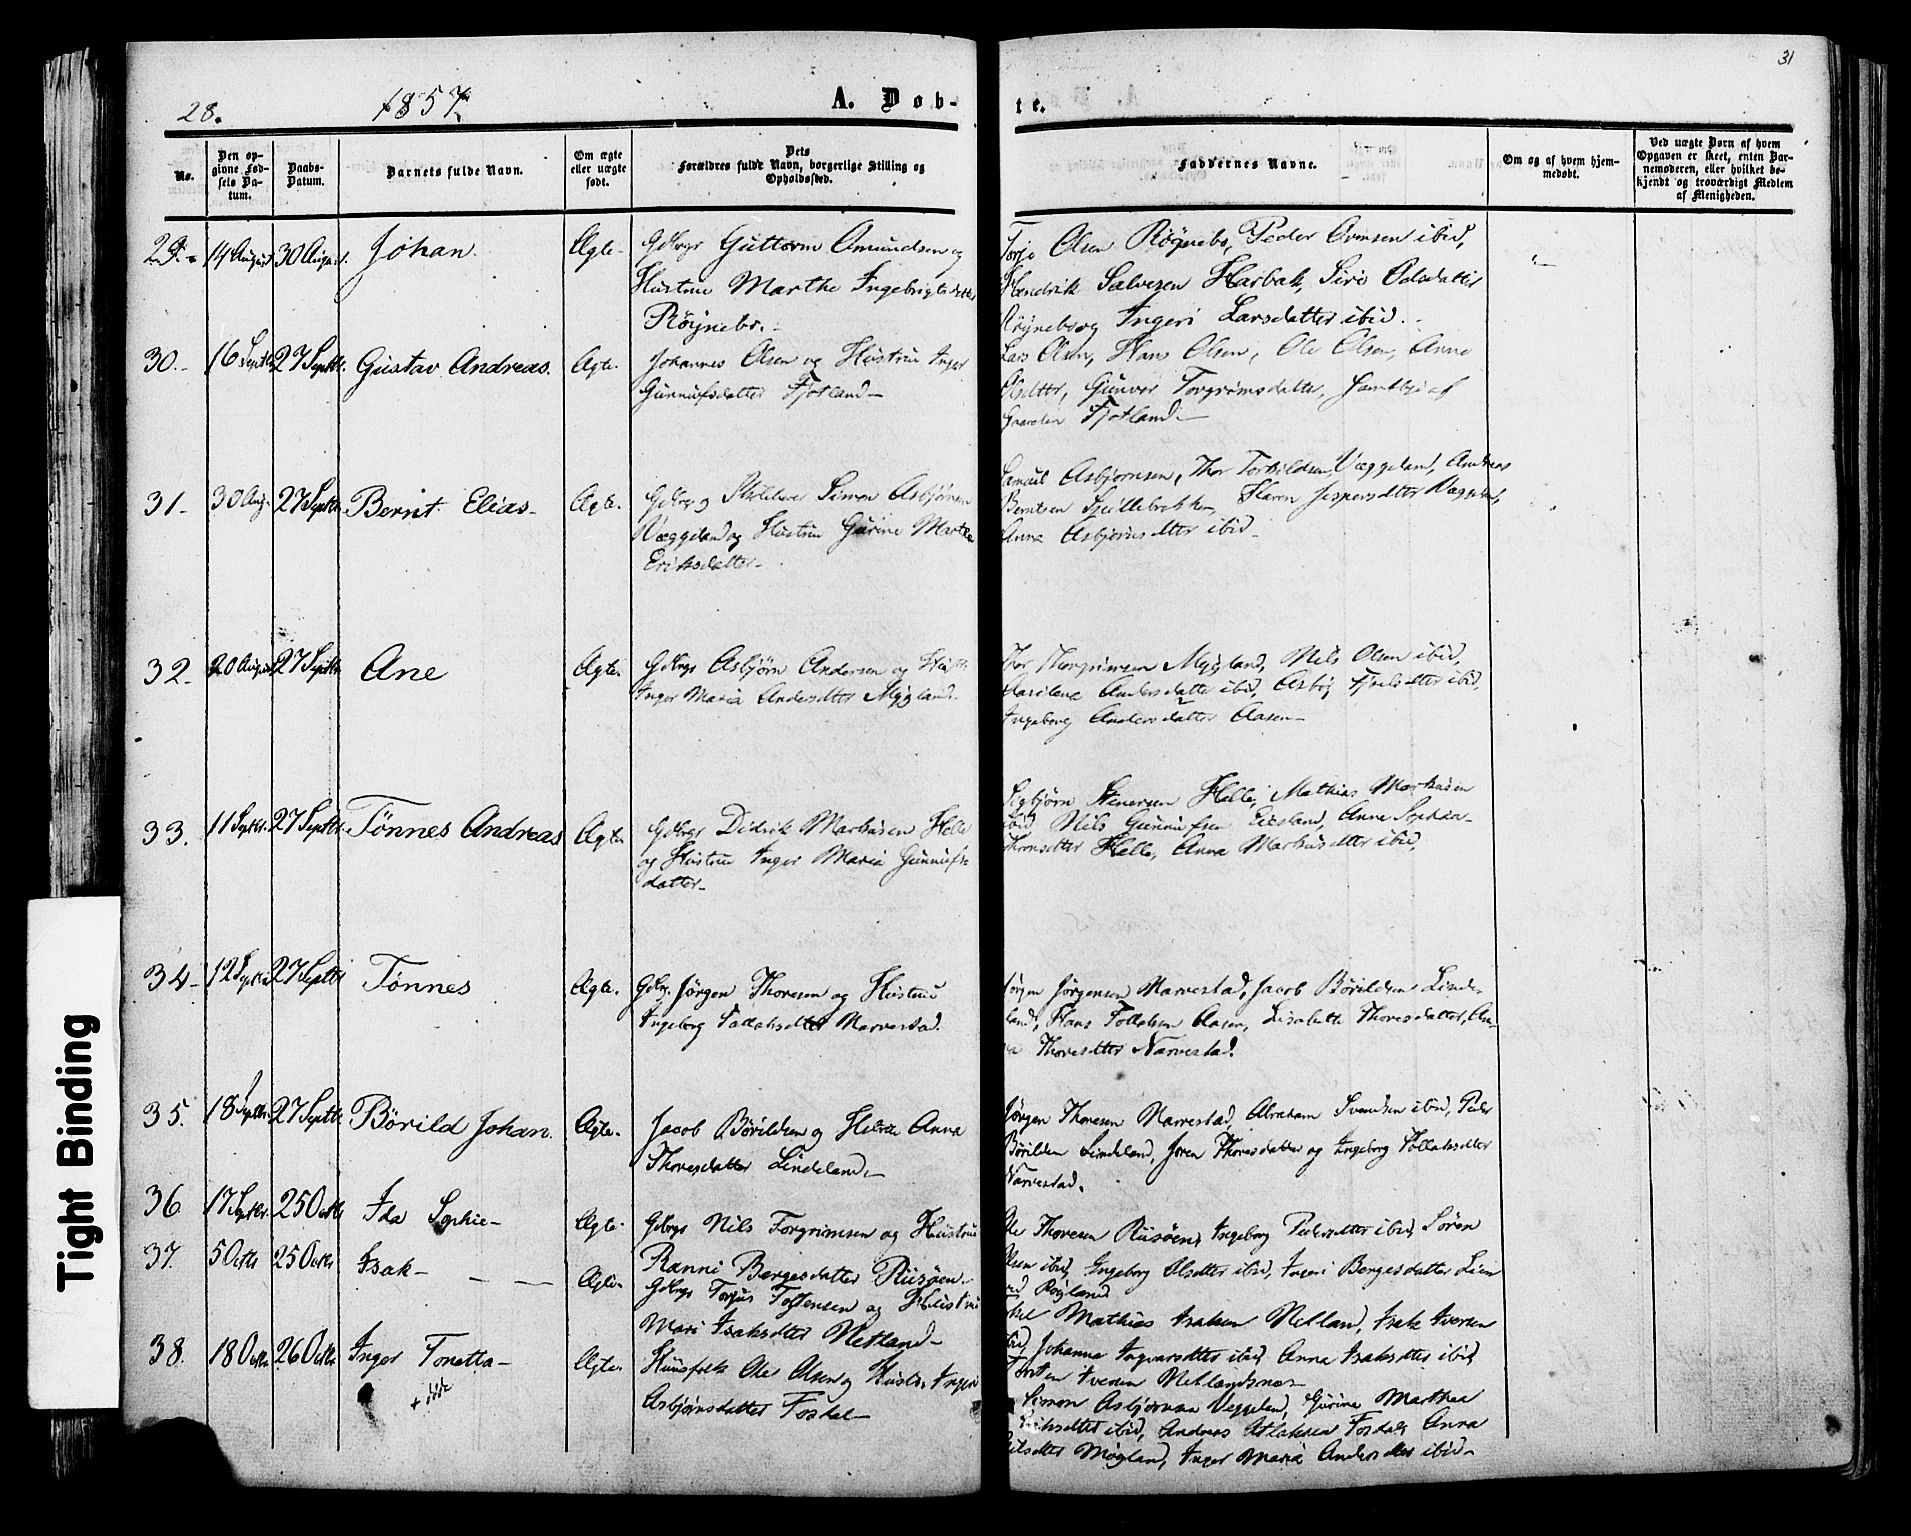 31
28.
1857.
A. Døb-
te.
No.
Den op-
givne Fød-
sels Da-
tum.
Daabs-
Datum.
Barnets fulde Navn.
Om ægte
eller uægte
født.
Dets
Forældres fulde Navn, borgerlige Stilling og
Opholdssted.
Faddernes Navne.
Om og af hvem hjem-
medøbt.
Ved uægte Børn af hvem
Opgaven er skeet, enten Bar-
nemoderen, eller hvilket be-
kjendt og troværdigt Medlem
af Menigheden.
29. 14 August 30 August. Johan. Ægte.
Gdbrgr Guttorm Amundsen og
Hustrue Marthe Ingebrigtsdatter
Røynebo.
Torjo Olsen Røynebo, Peder ibid,
Hendrik Salvesen Harbak, Siri Olsdatter
Røynebo og Ingeri Larsdatter ibid.
30. 16 Septbr 27 Septbr. Gustav Andreas. Ægte.
Johannes Olsen og Hustrue Inger
Gunnufsdatter Fjotland
Lars Olsen, Hans Olsen, Ole Olsen, Anne
Olsdtter, Gunvor Torgrimsdatter, samtlige af
Gaarden Fjotland
31. 30 Aug. 27 Septbr Bernt Elias Ægte.
Gdbrg Simon Asbjørnsen
Væggeland og Hustrue Gurine Marthe
Eriksdatter
Samuel Asbjørnsen, Thor Torkildsen Væggeland, Andreas
Berntsen, Karen Jespersdtter Væggeland,
Anna Asbjørnsdtter ibid.
32. 20 August 27 Septbr Ane Ægte.
Gdbrgr Asbjørn Andersen og Hustr.
Inger Maria Andersdtter Mygland.
Thor Thorgrimsen Mygland, Nils Olsen ibid,
Andersdatter ibid, ibid,
Ingeborg Andersdatter Aasen
33. 11 Septbr. 27 Septbr. Tønnes Andreas Ægte
Gdbrgr Didrik Markusen Helle
og Hustrue Inger Maria Gunnufs-
datter
Sigbjørn Stenersen Helle, Mathias Markusen
ibid, Nils Gunnufsen Eiesland, Anne Sophia
Thorsdtter Helle, Anna Markusdtter ibid,
34. 12 Septbr 27 Septbr Tønnes Ægte.
Gdbrg. Jørgen Thoresen og Hustrue
Ingeborg Tollaksdtter Narvestad.
Jørgen Jørgensen Narvestad, Jacob Børildsen Linde-
land, Hans Tollaksen Aasen, Lisabette Thoresdatter, An-
na Thoresdtter Narvestad.
35. 18 Septbr. 27 Septbr Børild Johan. Ægte.
Jacob Børildsen og Hustrue Anna
Thoresdatter Lindeland
Jørgen Thoresen Narvestad, Abraham Svendsen ibid, Peder
Børildsen Lindeland, Joren Thoresdatter og Ingeborg Tollaksdtter
Narvestad.
36. 17 Septbr. 25 Octbr Ida Sophie Ægte
Gdbrgr Nils Torgrimsen og Hustrue
Ranni Børgesdatter Riisøen.
Ole Thoresen Riisøen, Ingeborg Pedersdtter ibid, Søren
Olsen ibid, Ingeborg Olsdtter ibid, Ingeri Børgesdatter Lien
ved Røgland
37. 5 Octbr 25 Octbr Isak Ægte.
Gdbrgr Torjus Tostensen og Hustrue
Mari Isaksdtter Netland
Mathias Isaksen Netland, Isak Iversen
ibid, Johanne Ingvarsdtter ibid, Anna Isaksdtter ibid,
Iversen Netlandsnæs
38. 18 Octbr 26 Octbr Inger Tonetta Ægte.
+
Huusfolk Ole Olsen og Hustr. Ingeri
Asbjørnsdatter Fosdal
Simon Asbjørnsen Veggeland, Gurine Marthea
Eriksdtter ibid, Andreas Aslaksen Fosdal, Anna
Nilsdtter Møgland, Inger Maria Andersdtter ibid
Tight Binding